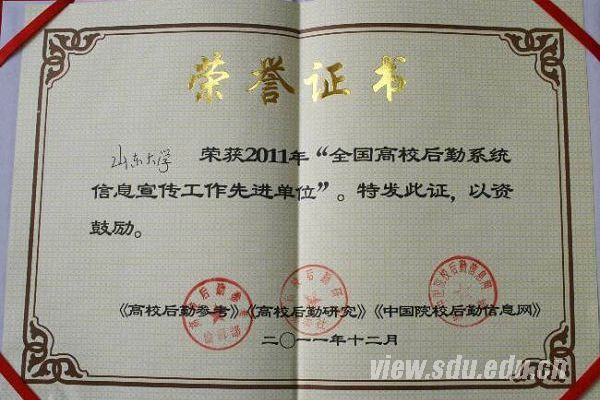 荣誉证书
山东大学 荣获2011年“全国高校后勤系统
信息宣传工作先进单位”。特发此证，以资
鼓励。
《高校后勤参考》《高校后勤研究》《中国院校后勤信息网》
二〇一一年十二月
view.sdu.edu.cn